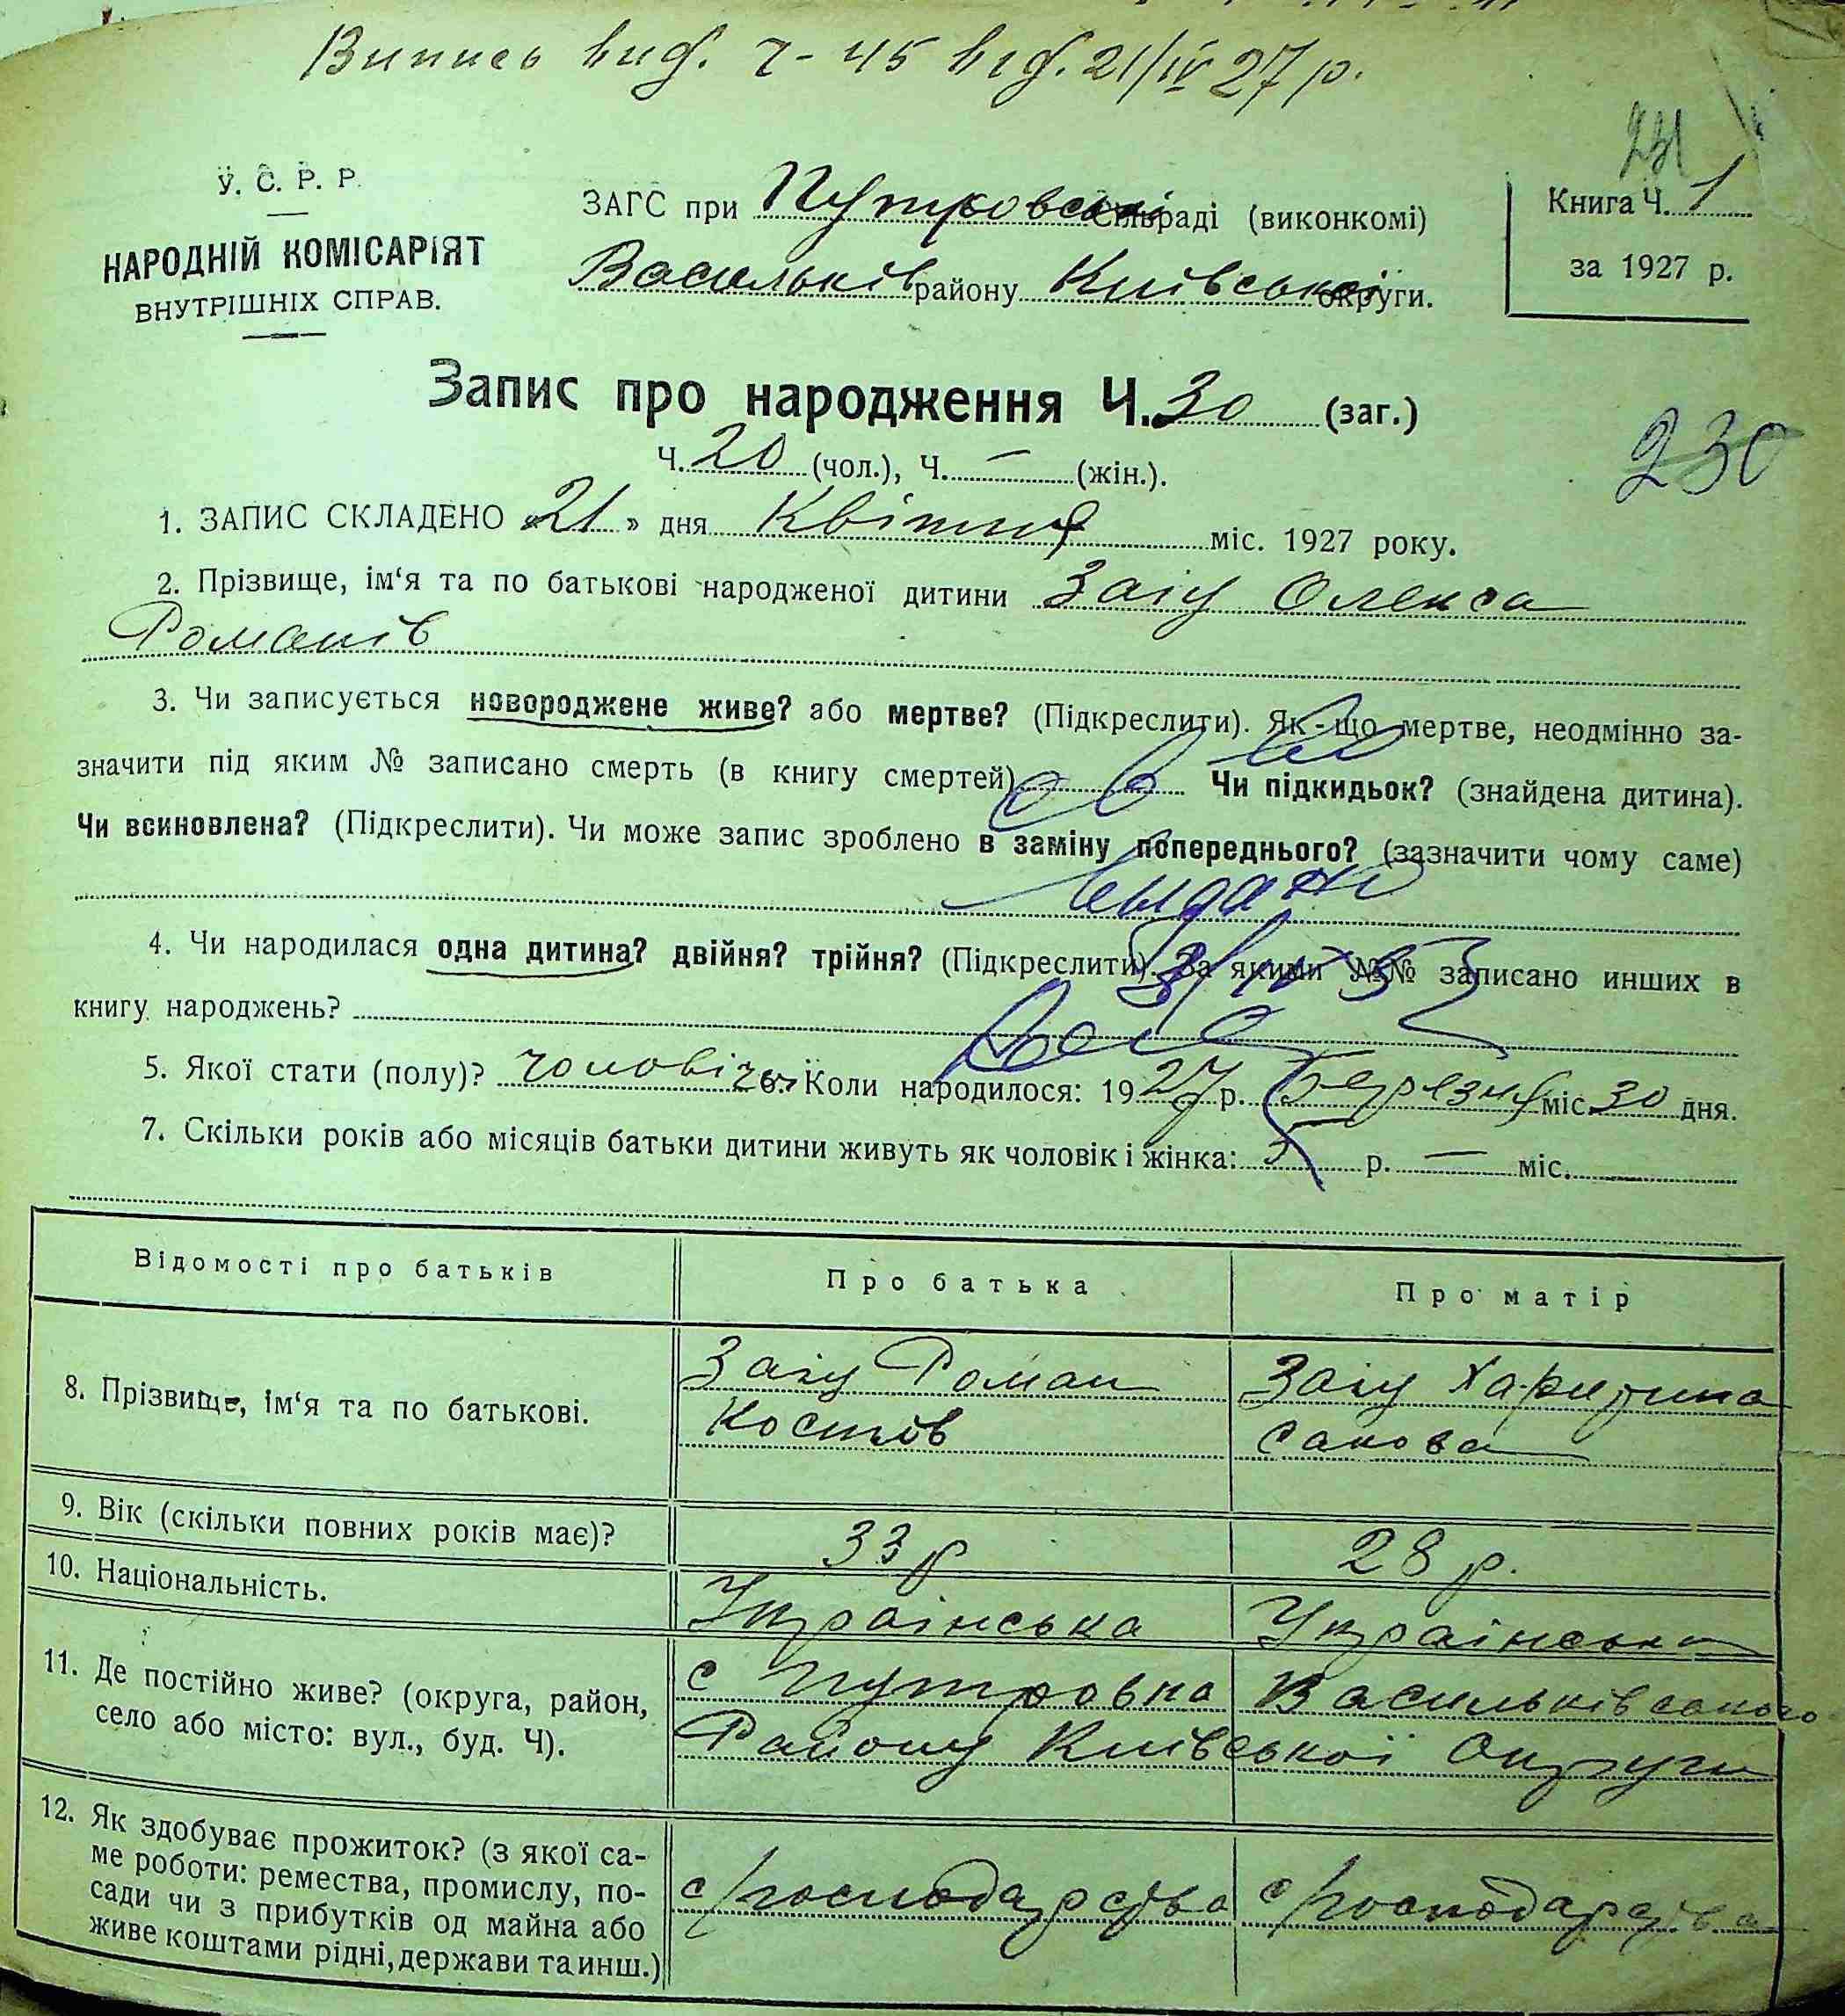 Випись вид. Ч-45 від. 21/IV 27 р.
231
У. С. Р. Р.
НАРОДНІЙ КОМІСАРІЯТ
ВНУТРІШНІХ СПРАВ.
ЗАГС при Путровській Сільраді (виконкомі)
Васильків району Київської округи.
Книга Ч. 1
за 1927 р.
Запис про народження Ч. 30 (заг.)
Ч. 20 (чол.), Ч. — (жін.).
230
1. ЗАПИС СКЛАДЕНО «21» дня Квітня міс. 1927 року.
2. Прізвище, ім‘я та по батькові народженої дитини Заіц Олекса
Романів
3. Чи записується новороджене живе? або мертве? (Підкреслити). Як-що мертве, неодмінно за-
значити під яким № записано смерть (в книгу смертей) Чи підкидьок? (знайдена дитина).
Чи всиновлена? (Підкреслити). Чи може запис зроблено в заміну попереднього? (зазначити чому саме)
4. Чи народилася одна дитина? двійня? трійня? (Підкреслити). За якими №№ записано инших в
книгу народжень?
5. Якої стати (полу)? чоловічої Коли народилося: 1927 р. Березня міс. 30 дня.
7. Скільки років або місяців батьки дитини живуть як чоловік і жінка: 5 р. — міс.
Відомості про батьків Про батька Про матір
8. Прізвище, ім‘я та по батькові. Заіц Роман Заіц Харитина
Костів Савова
9. Вік (скільки повних років має)? 33 р 28 р.
10. Національність. Українська Українська
11. Де постійно живе? (округа, район, с Путровка Васильківського
село або місто: вул., буд. Ч). Району Київської Округи
12. Як здобуває прожиток? (з якої са-
ме роботи: ремества, промислу, по-
сади чи з прибутків од майна або с/господарства с/господарства
живе коштами рідні, держави та инш.)